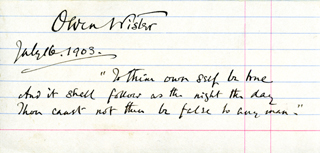 Owen Wister
July 16. 1903.
"To thine own self be true
And it shall follow as the night the day
Thou canst not then be false to any man."